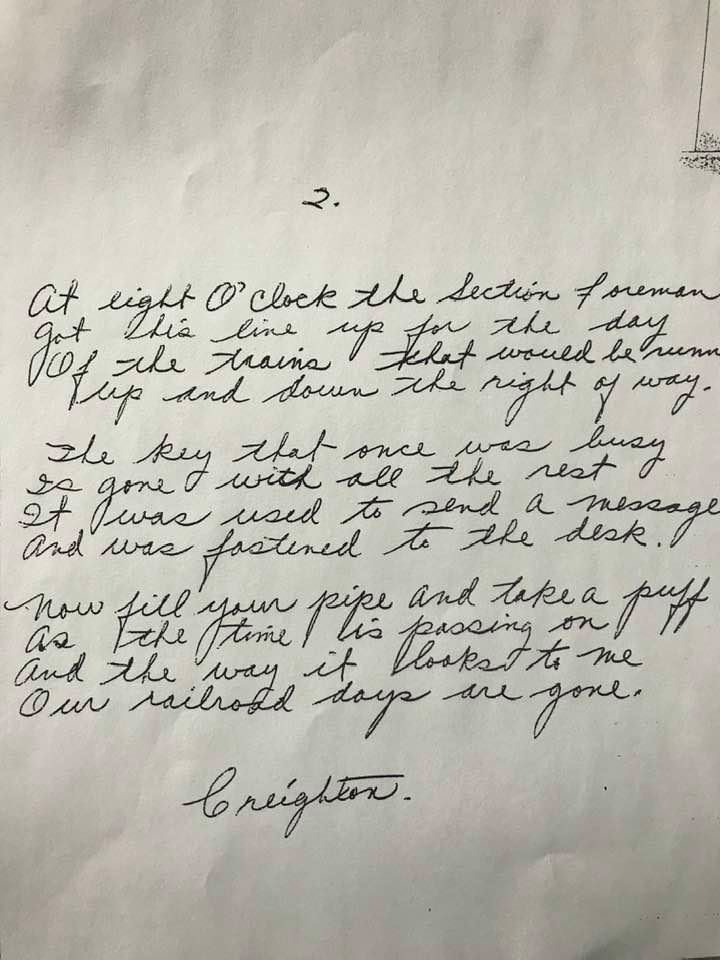 2.
At eight O'clock the Section foreman
got his line up for the day
Of the trains that would be runn
up and down the right of way.
The key that once was busy
Is gone with all the rest
It was used to send a message
And was fastened to the desk.
Now fill your pipe and take a puff
As the time is passing on
And the way it looks to me
Our railroad days are gone.
Creighton.